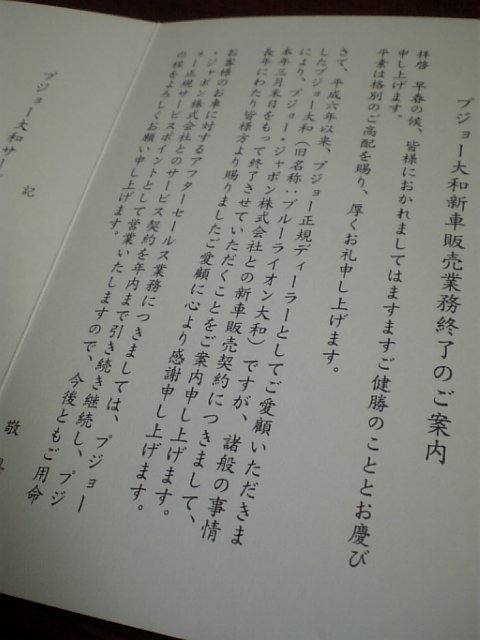 プジョー大和新車販売業務終了のご案内
拝啓 早春の候、皆様におかれましてはますますご健勝のこととお慶び
申し上げます。
平素は格別のご高配を賜り、厚くお礼申し上げます。
さて、平成六年以来、プジョー正規ディーラーとしてご愛顧いただきま
したプジョー大和（旧名称：ブルーライオン大和）ですが、諸般の事情
により、プジョー・ジャポン株式会社との新車販売契約につきまして、
本年三月末日をもって終了させていただくことをご案内申し上げます。
長年にわたり皆様方より賜りましたご愛顧に心より感謝申し上げます。
お客様のお車に対するアフターセールス業務につきましては、プジョー
・ジャポン株式会社とのサービス契約を年内まで引き続き継続し、プジ
ョー正規サービスポイントとして営業いたしますので、今後ともご用命
の様をよろしくお願い申し上げます。
敬具
記
プジョー大和サー